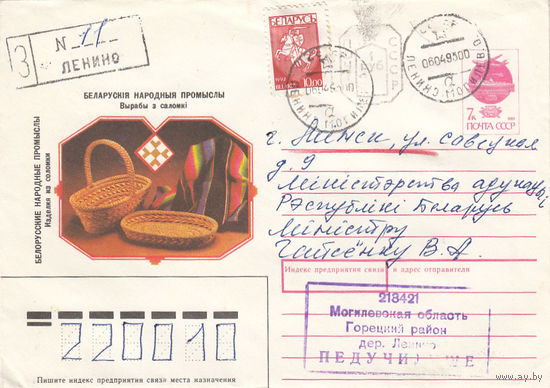 З
N 11
ЛЕНИНО
БЕЛАРУСЬ
10.00
06049500
06049500
7к
ПОЧТА СССР
БЕЛАРУСКІЯ НАРОДНЫЯ ПРОМЫСЛЫ
Вырабы з саломкі
БЕЛОРУССКИЕ НАРОДНЫЕ ПРОМЫСЛЫ
Изделия из соломки
г. Минск, ул. савецкая
д. 9
Міністэрства адукацыі
Рэспублікі Беларусь
Міністру
Гайсёнку В. А.
Индекс предприятия связи и адрес отправителя
218421
Могилевская область
Горецкий район
дер. Ленино
ПЕДУЧИЛИЩЕ
220010
Пишите индекс предприятия связи места назначения
www.ay.by